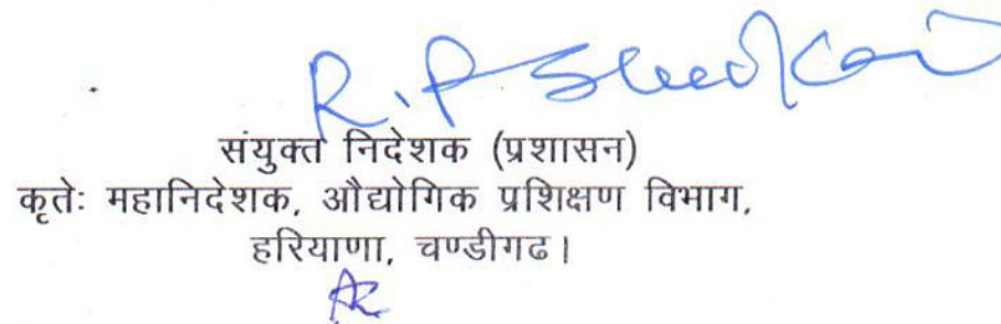 R.P
संयुक्त निदेशक (प्रशासन)
कृतेः महानिदेशक, औद्योगिक प्रशिक्षण विभाग,
हरियाणा, चण्डीगढ।